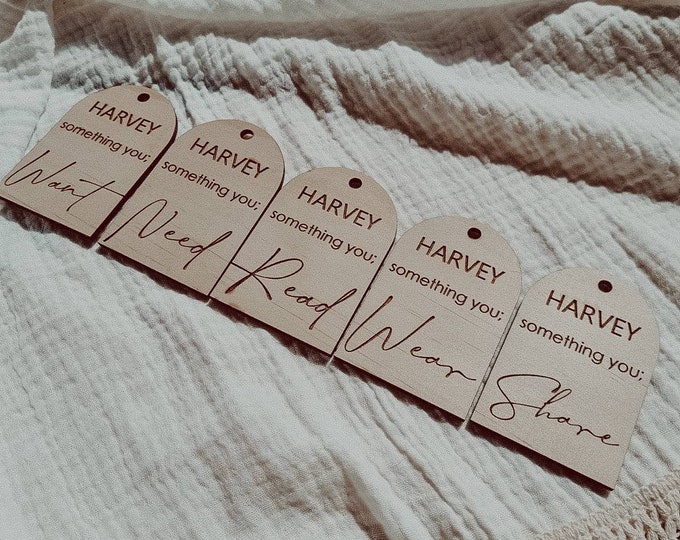 HARVEY
something you;
Want
HARVEY
something you;
Need
HARVEY
something you;
Read
HARVEY
something you;
Wear
HARVEY
something you;
Share